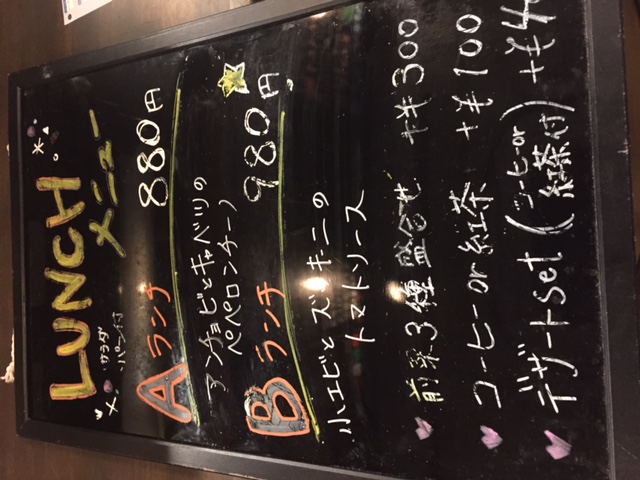 LUNCH
メニュー
サラダ
パン付
Aランチ 880円
アンチョビとキャベツの
ペペロンチーノ
Bランチ 980円
小エビとズッキーニの
トマトソース
前菜3種盛合せ +¥300
コーヒーor紅茶 +¥100
デザートset(コーヒーor紅茶付) +¥4